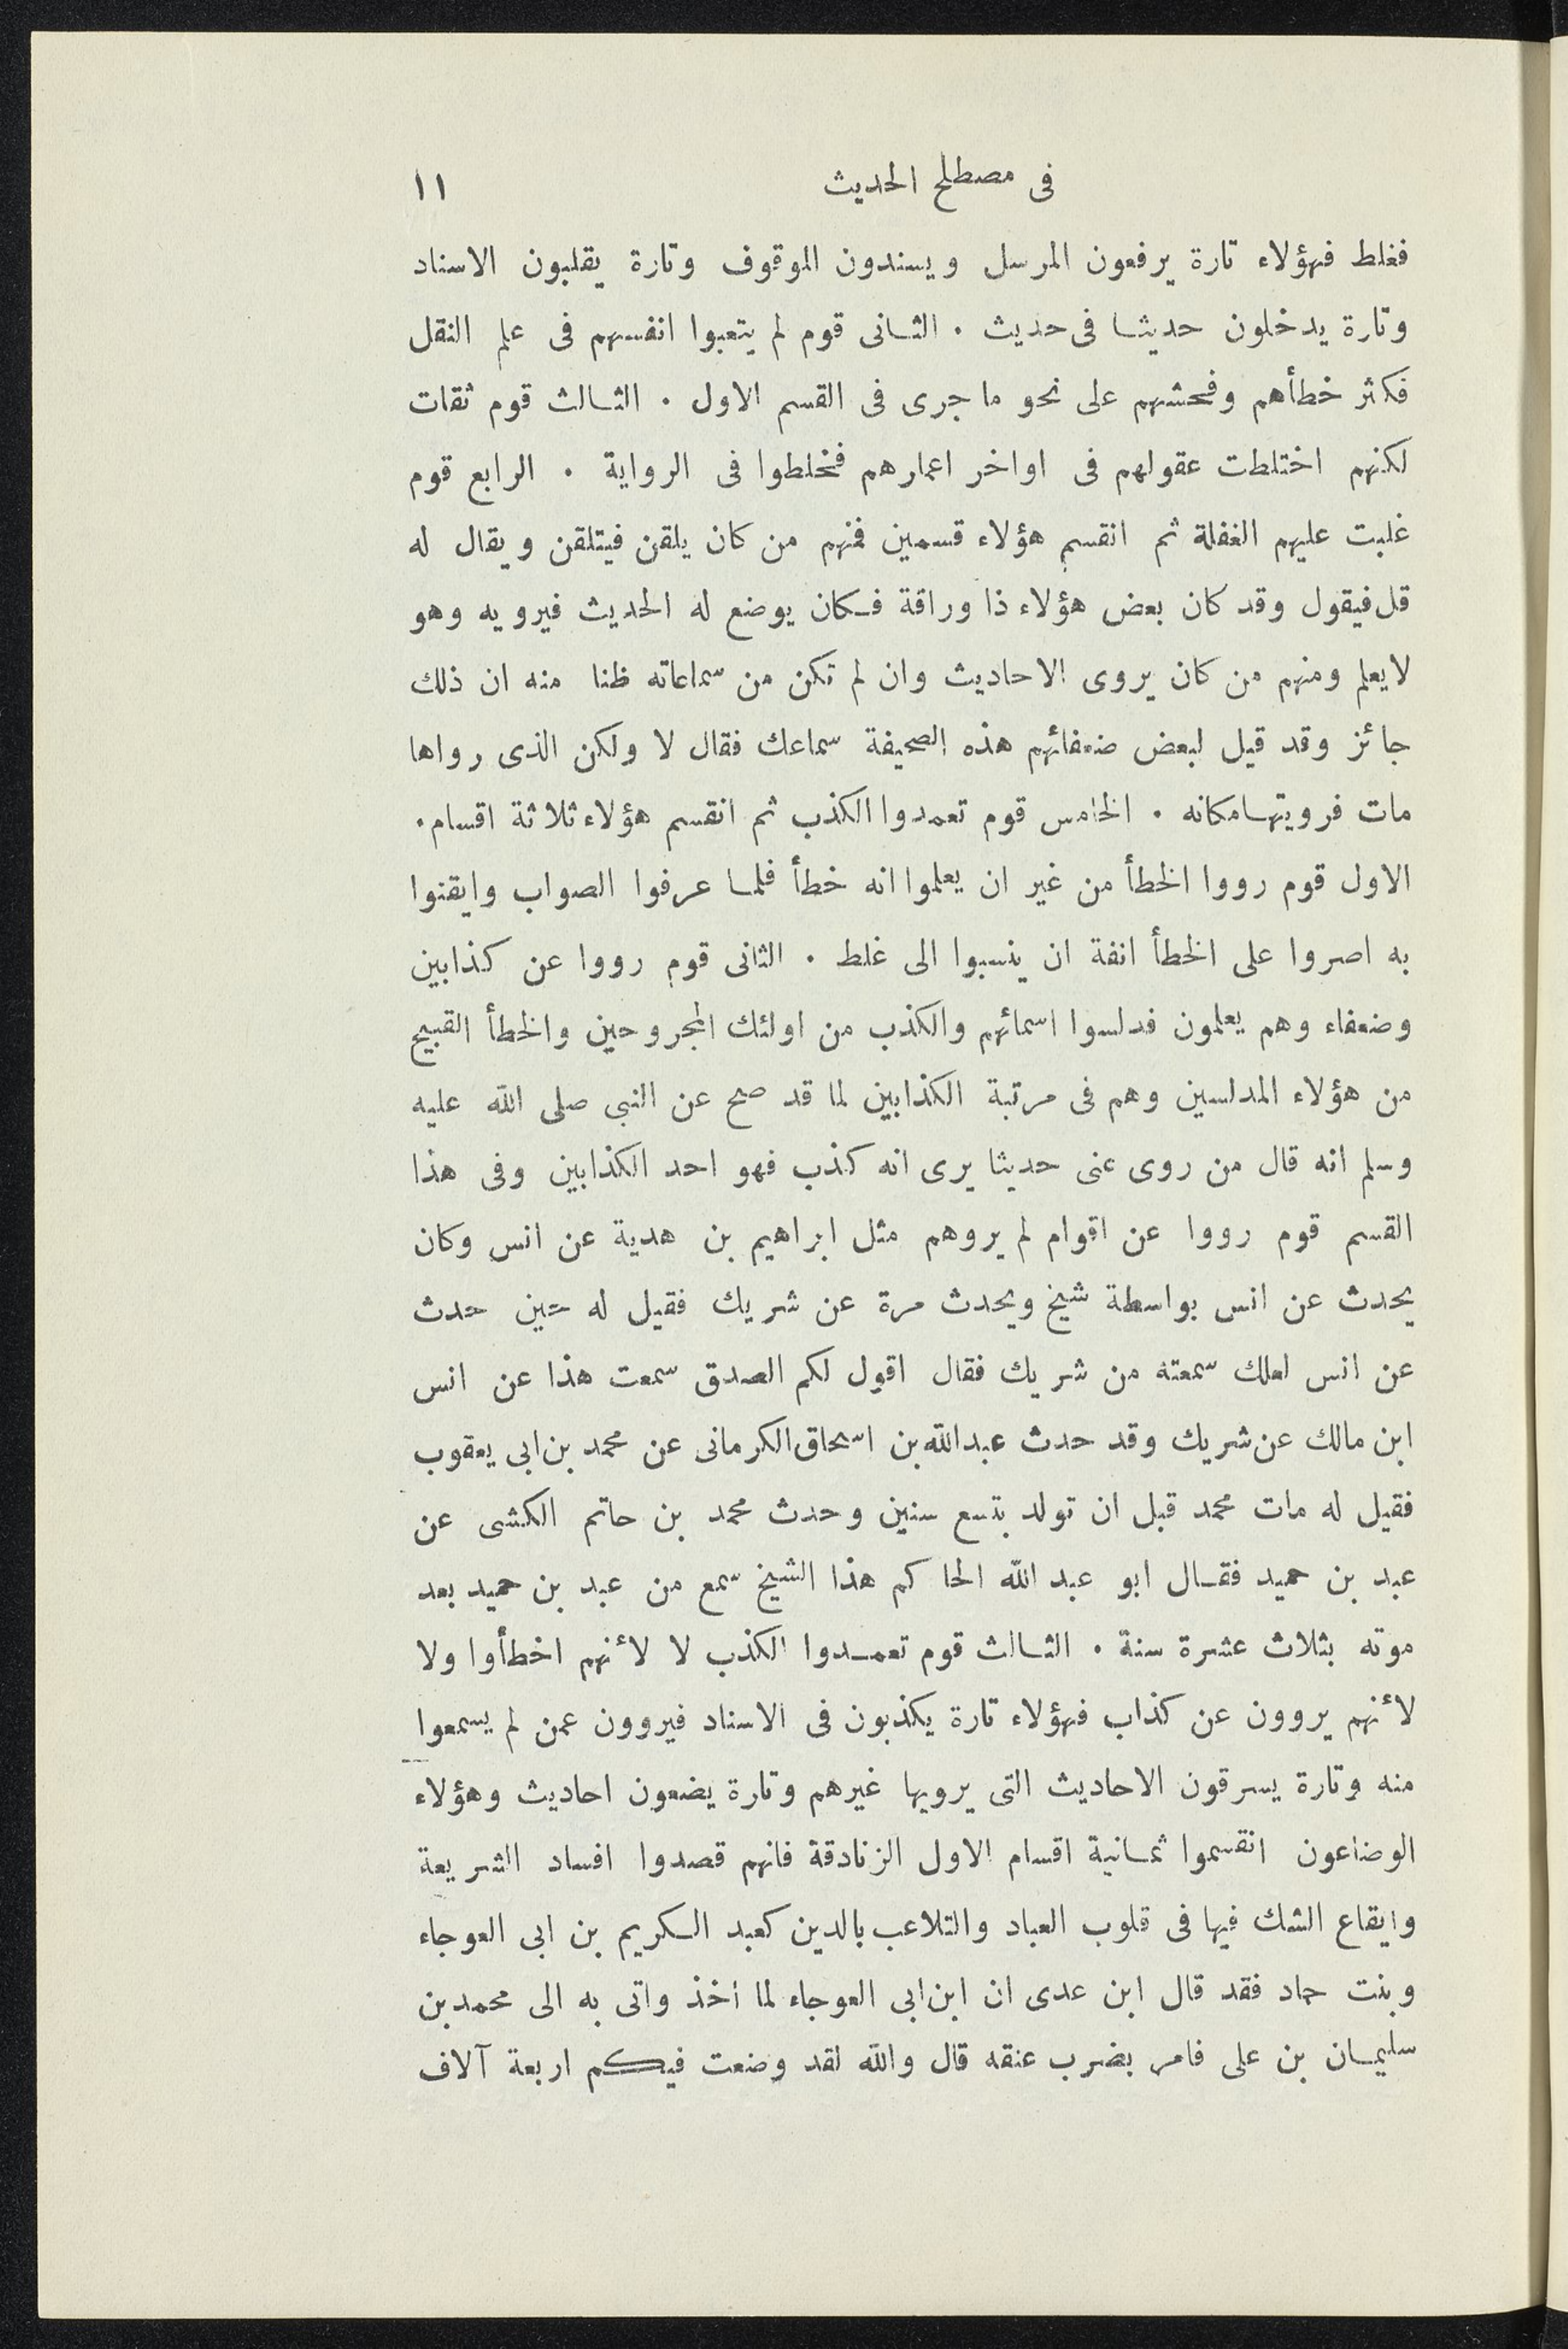 فى مصطلح الحديث ١١
فغلط فهؤلاء تارة يرفعون المرسل ويسندون الموقوف وتارة يقلبون الاسناد
وتارة يدخلون حديثا فى حديث . الثانى قوم لم يتعبوا انفسهم فى علم النقل
فكثر خطأهم وفحشهم على نحو ما جرى فى القسم الاول . الثالث قوم ثقات
لكنهم اختلطت عقولهم فى اواخر اعمارهم فخلطوا فى الرواية . الرابع قوم
غلبت عليهم الغفلة ثم انقسم هؤلاء قسمين فمنهم من كان يلقن فيتلقن ويقال له
قل فيقول وقد كان بعض هؤلاء ذا وراقة فكان يوضع له الحديث فيرويه وهو
لايعلم ومنهم من كان يروى الاحاديث وان لم تكن من سماعاته ظنا منه ان ذلك
جائز وقد قيل لبعض ضعفائهم هذه الصحيفة سماعك فقال لا ولكن الذى رواها
مات فرويتها مكانه . الخامس قوم تعمدوا الكذب ثم انقسم هؤلاء ثلاثة اقسام .
الاول قوم رووا الخطأ من غير ان يعلموا انه خطأ فلما عرفوا الصواب وايقنوا
به اصروا على الخطأ انفة ان ينسبوا الى غلط . الثانى قوم رووا عن كذابين
وضعفاء وهم يعلمون فدلسوا اسمائهم والكذب من اولئك المجروحين والخطأ القبيح
من هؤلاء المدلسين وهم فى مرتبة الكذابين لما قد صح عن النبى صلى الله عليه
وسلم انه قال من روى عنى حديثا يرى انه كذب فهو احد الكذابين وفى هذا
القسم قوم رووا عن اقوام لم يروهم مثل ابراهيم بن هدية عن انس وكان
يحدث عن انس بواسطة شيخ ويحدث مرة عن شريك فقيل له حين حدث
عن انس لعلك سمعته من شريك فقال اقول لكم الصدق سمعت هذا عن انس
ابن مالك عن شريك وقد حدث عبدالله بن اسحاق الكرمانى عن محمد بن ابى يعقوب
فقيل له مات محمد قبل ان تولد بتسع سنين وحدث محمد بن حاتم الكشى عن
عبد بن حميد فقال ابو عبد الله الحاكم هذا الشيخ سمع من عبد بن حميد بعد
موته بثلاث عشرة سنة . الثالث قوم تعمدوا الكذب لا لأنهم اخطأوا ولا
لأنهم يروون عن كذاب فهؤلاء تارة يكذبون فى الاسناد فيروون عمن لم يسمعوا
منه وتارة يسرقون الاحاديث التى يرويها غيرهم وتارة يضعون احاديث وهؤلاء
الوضاعون انقسموا ثمانية اقسام الاول الزنادقة فانهم قصدوا افساد الشريعة
وايقاع الشك فيها فى قلوب العباد والتلاعب بالدين كعبد الكريم بن ابى العوجاء
وبنت حماد فقد قال ابن عدى ان ابن ابى العوجاء لما اخذ واتى به الى محمد بن
سليمان بن على فامر بضرب عنقه قال والله لقد وضعت فيكم اربعة آلاف